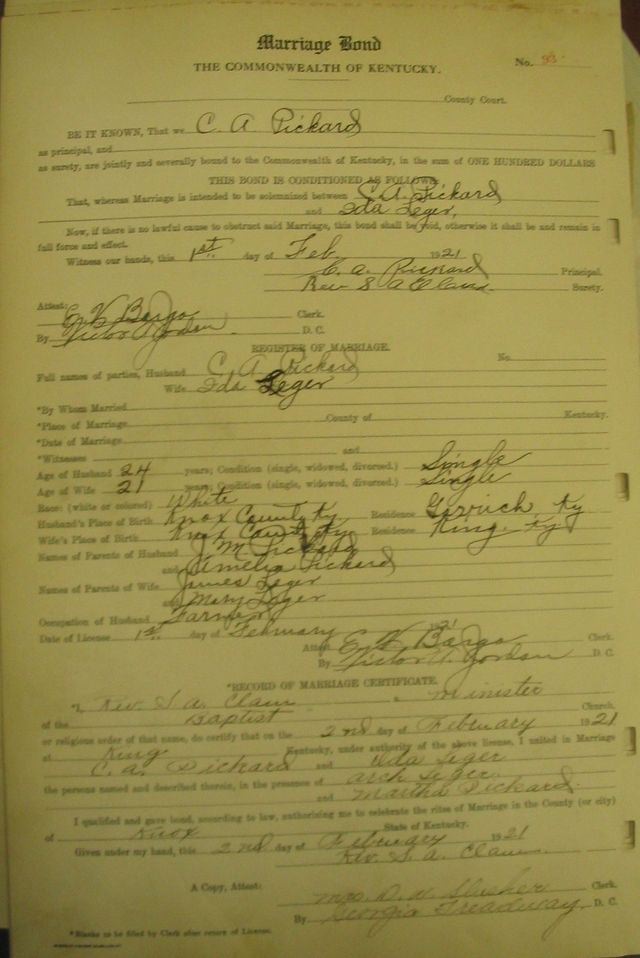 Marriage Bond
THE COMMONWEALTH OF KENTUCKY.
No. 93
County Court.
BE IT KNOWN, That we C. A Pickard
as principal, and
as surety, are jointly and severally bound to the Commonwealth of Kentucky, in the sum of ONE HUNDRED DOLLARS
THIS BOND IS CONDITIONED AS FOLLOWS:
That, whereas Marriage is intended to be solemnized between C. A. Pickard
and Ida Leger,
Now, if there is no lawful cause to obstruct said Marriage, this bond shall be void, otherwise it shall be and remain in
full force and effect.
Witness our hands, this 1st day of Feb 1921
C. A. Pickard Principal.
Rev S A Claim Surety.
Attest:
Bargo Clerk.
By Victor A Jordan D. C.
REGISTER OF MARRIAGE.
No.
Full names of parties, Husband C A Pickard
Wife Ida Leger
*By Whom Married
*Place of Marriage County of Kentucky.
*Date of Marriage
*Witnesses and
Age of Husband 24 years; Condition (single, widowed, divorced.) Single
Age of Wife 21 years; Condition (single, widowed, divorced.) Single
Race: (white or colored) White
Husband's Place of Birth Knox County Ky Residence Ky
Wife's Place of Birth Knox County Ky Residence King, Ky
Names of Parents of Husband J. M. Pickard
and Amelia Pickard
Names of Parents of Wife James Leger
and Mary Leger
Occupation of Husband Farmer
Date of License 1st day of February 1921
Attest Bargo Clerk.
By Victor A. Jordan D. C.
*RECORD OF MARRIAGE CERTIFICATE.
*I, Rev. S. A. Claim a minister
of the Baptist Church,
or religious order of that name, do certify that on the 2nd day of February 1921
at King Kentucky, under authority of the above license, I united in Marriage
C. A. Pickard and Ida Leger
the persons named and described therein, in the presence of Arch Leger
and Martha Pickard.
I qualified and gave bond, according to law, authorizing me to celebrate the rites of Marriage in the County (or city)
of Knox State of Kentucky.
Given under my hand, this 2nd day of February 1921
Rev. S. A. Claim
A Copy, Attest: Mrs. D. W. Slusher Clerk.
By Georgia Treadway D. C.
*Blanks to be filled by Clerk after return of License.